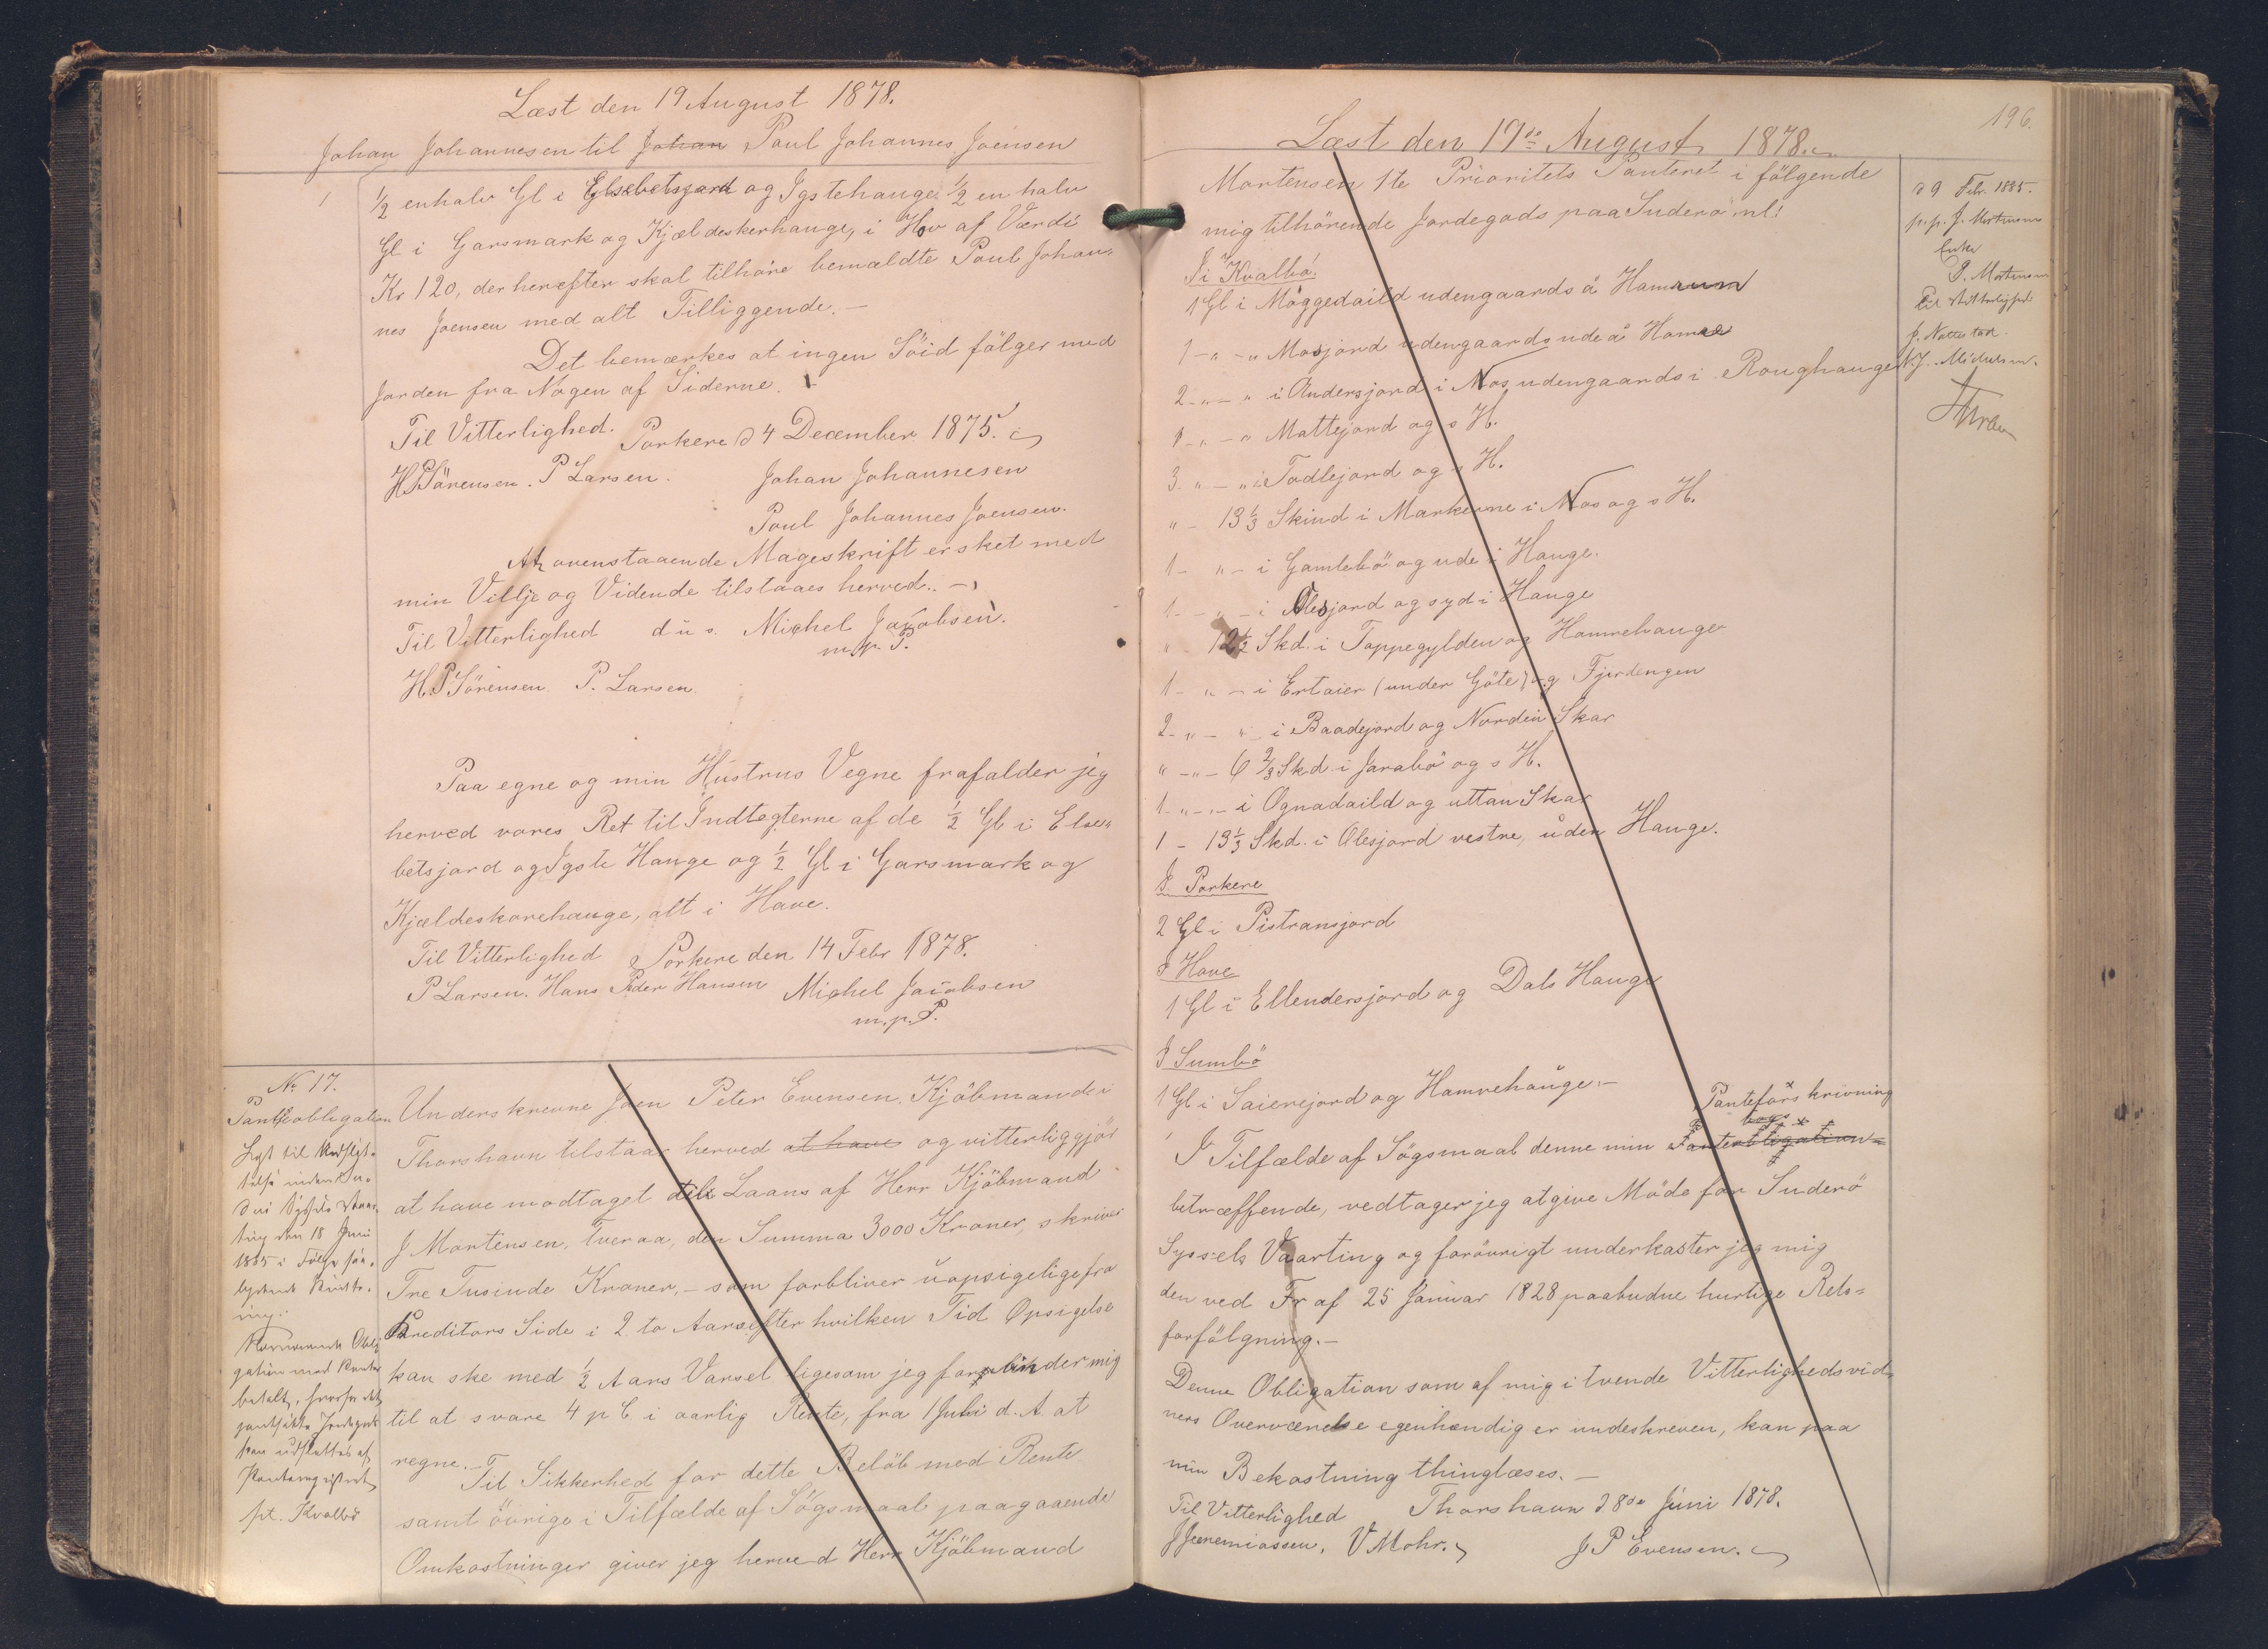 Læst den 19 August 1878.
Johan Johannesen til Johan Poul Johannes Joensen
1
½ enhalv Gl i Elsebetsjard og Igstehauge ½ en halv
Gl i Garsmark og Kjældeskerhauge, i Hov af Værdi
Kr 120, der herefter skal tilhöre bemældte Poul Johan-
nes Joensen med alt Tilliggende. -
Det bemærkes at ingen Söid fölger med
Jorden fra Nogen af Siderne. -
Til Vitterlighed. Porkere d 4 December 1875.
H.P. Sörensen. P Larsen. Johan Johannesen
Poul Johannes Joensen.
At ovenstaaende Mageskrift er sket med
min Villje og Vidende tilstaaes herved. -
Til Vitterlighed d. u. s. Michel Jacobsen.
m. p. P.
H. P Sörensen. P. Larsen.
Paa egne og min Hustrus Vegne frafalder jeg
herved vores Ret til Indtægterne af de ½ Gl i Else-
betsjard og Igste Hauge og ½ Gl i Garsmark og
Kjældeskorehauge, alt i Have.
Til Vitterlighed Porkere den 14 Febr 1878.
P Larsen. Hans Peder Hansen Michel Jacobsen
m. p. P.
No 17.
Panteobligation
Lyst til Udslet-
telse inden Su-
derö Syssels Vaar-
ting den 18 Juni
1885 i Fölge saa-
lydende Kvitte-
ring:
Nærværende Obli-
gation med Renter
betalt, hvorfor det
pantsatte Jordegods
kan udslettes af
Panteregistret
pt. Kvalbö
Underskrevne Joen Peter Evensen, Kjöbmand i
Thorshavn tilstaar herved at have og vitterliggjör
at have modtaget til Laans af Herr Kjöbmand
J Mortensen, Tveraa, den Summa 3000 Kroner, skriver
Tre Tusinde Kroner, - som forbliver uopsigelige fra
Kreditors Side i 2 to Aar efter hvilken Tid Opsigelse
kan ske med ½ Aars Varsel ligesom jeg forbinder mig
til at svare 4 p C. i aarlig Rente, fra 1 Juli d. A. at
regne. -
Til Sikkerhed for dette Belöb med Rente
samt övrige i Tilfælde af Sögsmaal paagaaende
Omkostninger giver jeg herved Herr Kjöbmand
196.
Læst den 19de August 1878.
Mortensen 1te Prioritets Panteret i fölgende
mig tilhörende Jordegods paa Suderö nl:
I Kvalbö:
1 Gl i Möggedaild udengaards å Hamrum
1 - " - " Mosjord udengaards ude å Hamre
2 - " - " i Andersjord i Nos udengaards i Roughauge
1 - " - " Mattejord og s H.
3 - " - " i Todlejord og s H.
" - 13⅓ Skind i Markerne i Nos og s H.
1 - " - i Gamlebö og ude i Hauge.
1 - " - i Olesjord og syd i Hauge
" - 12½ Skd. i Toppegylden og Hamrehauge
1 - " - i Ertaier (under Göte) og Fjerdengen
2 - " - " i Baadejord og Norden Skar
" - " - 6⅔ Skd. i Jarabö og s H.
1 - " - " i Ognadaild og uttan Skar
1 - 13⅓ Skd. i Olesjord vestre, uden Hauge.
I Porkere
2 Gl i Pistransjord
I Hove
1 Gl i Ellendersjord og Dals Hauge
I Sumbö
1 Gl i Saierejord og Hamrehauge. -
Panteforskrivning
I Tilfælde af Sögsmaal denne min Panteobligation
betræffende, vedtager jeg at give Möde for Suderö
Syssels Vaarting og forövrigt underkaster jeg mig
den ved Fr af 25 Januar 1828 paabudne hurtige Rets-
forfölgning. -
Denne Obligation som af mig i tvende Vitterlighedsvid-
ners Overværelse egenhændig er underskreven, kan paa
min Bekostning thinglæses. -
Til Vitterlighed Thorshavn d 8de Juni 1878.
J Jeremiassen. V Mohr. J P Evensen.
d 9 Febr. 1885.
p. p. J. Mortensens
Enke
P. Mortensen
Til Vitterlighed:
J. Nattestad.
N. J. Michelsen.